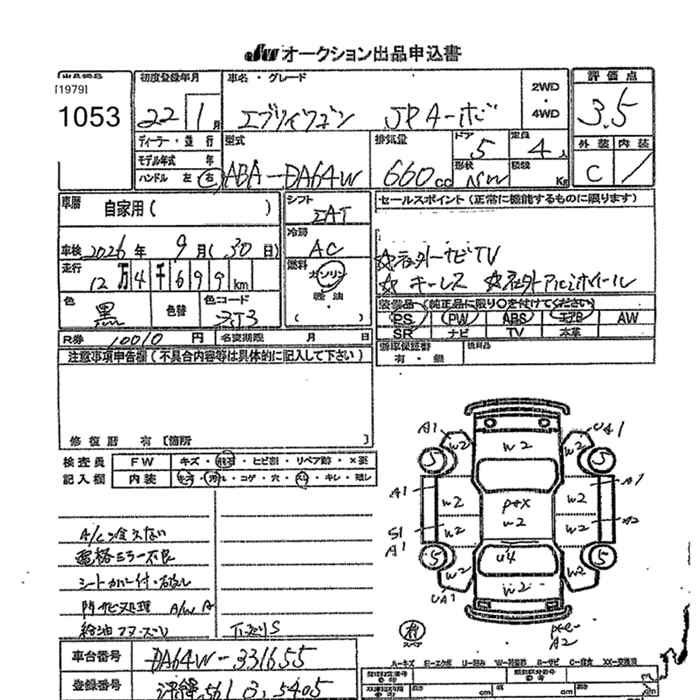 JU オークション出品申込書
出品番号 初度登録年月 車名・グレード 2WD・4WD 評価点
[1979]
1053 22年1月 エブリイワゴン JPターボ 3.5
ディーラー・並行 型式 排気量 ドア 定員 外装 内装
モデル年式 年
ハンドル 左 右 ABA-DA64W 660cc 5 4人 C
形状 積載 Kg
車歴 自家用( ) シフト IAT セールスポイント(正常に機能するものに限ります)
車検 2026年9月(30日) 冷房 AC
☆社外ナビTV
☆キーレス ☆社外アルミホイール
走行 12万4千699km 燃料 ガソリン・軽油・( )
色 黒 色替 色コード ZJ3
装備品(純正品に限り○を付けてください)
PS PW ABS エアB AW
SR ナビ TV 本革
R券 10010円 名変期限 月 日
新車保証書 有・無 後日品
注意事項申告欄(不具合内容等は具体的に記入して下さい)
修復歴 有〔箇所 〕
検査員 FW キズ・飛石・ヒビ割・リペア跡・×要
記入欄 内装 キズ・汚れ・コゲ・穴・スレ・キレ・残し
A/C冷えない
電格ミラー不良
シートカバー付・破れ
門サビ処理 A/W A
下廻りS
A1 W2 W2 W2 UA1
5 5
A1 W2 W2 A1
Pキズ
W2
S1 A1 W2 W2 A2
U4
5 5
UA1 W2 W2 W2
スペア
A2
車台番号 DA64W-331655
登録番号
A=キズ E=エクボ U=凹み W=補修跡 S=サビ C=腐食 XX=交換済